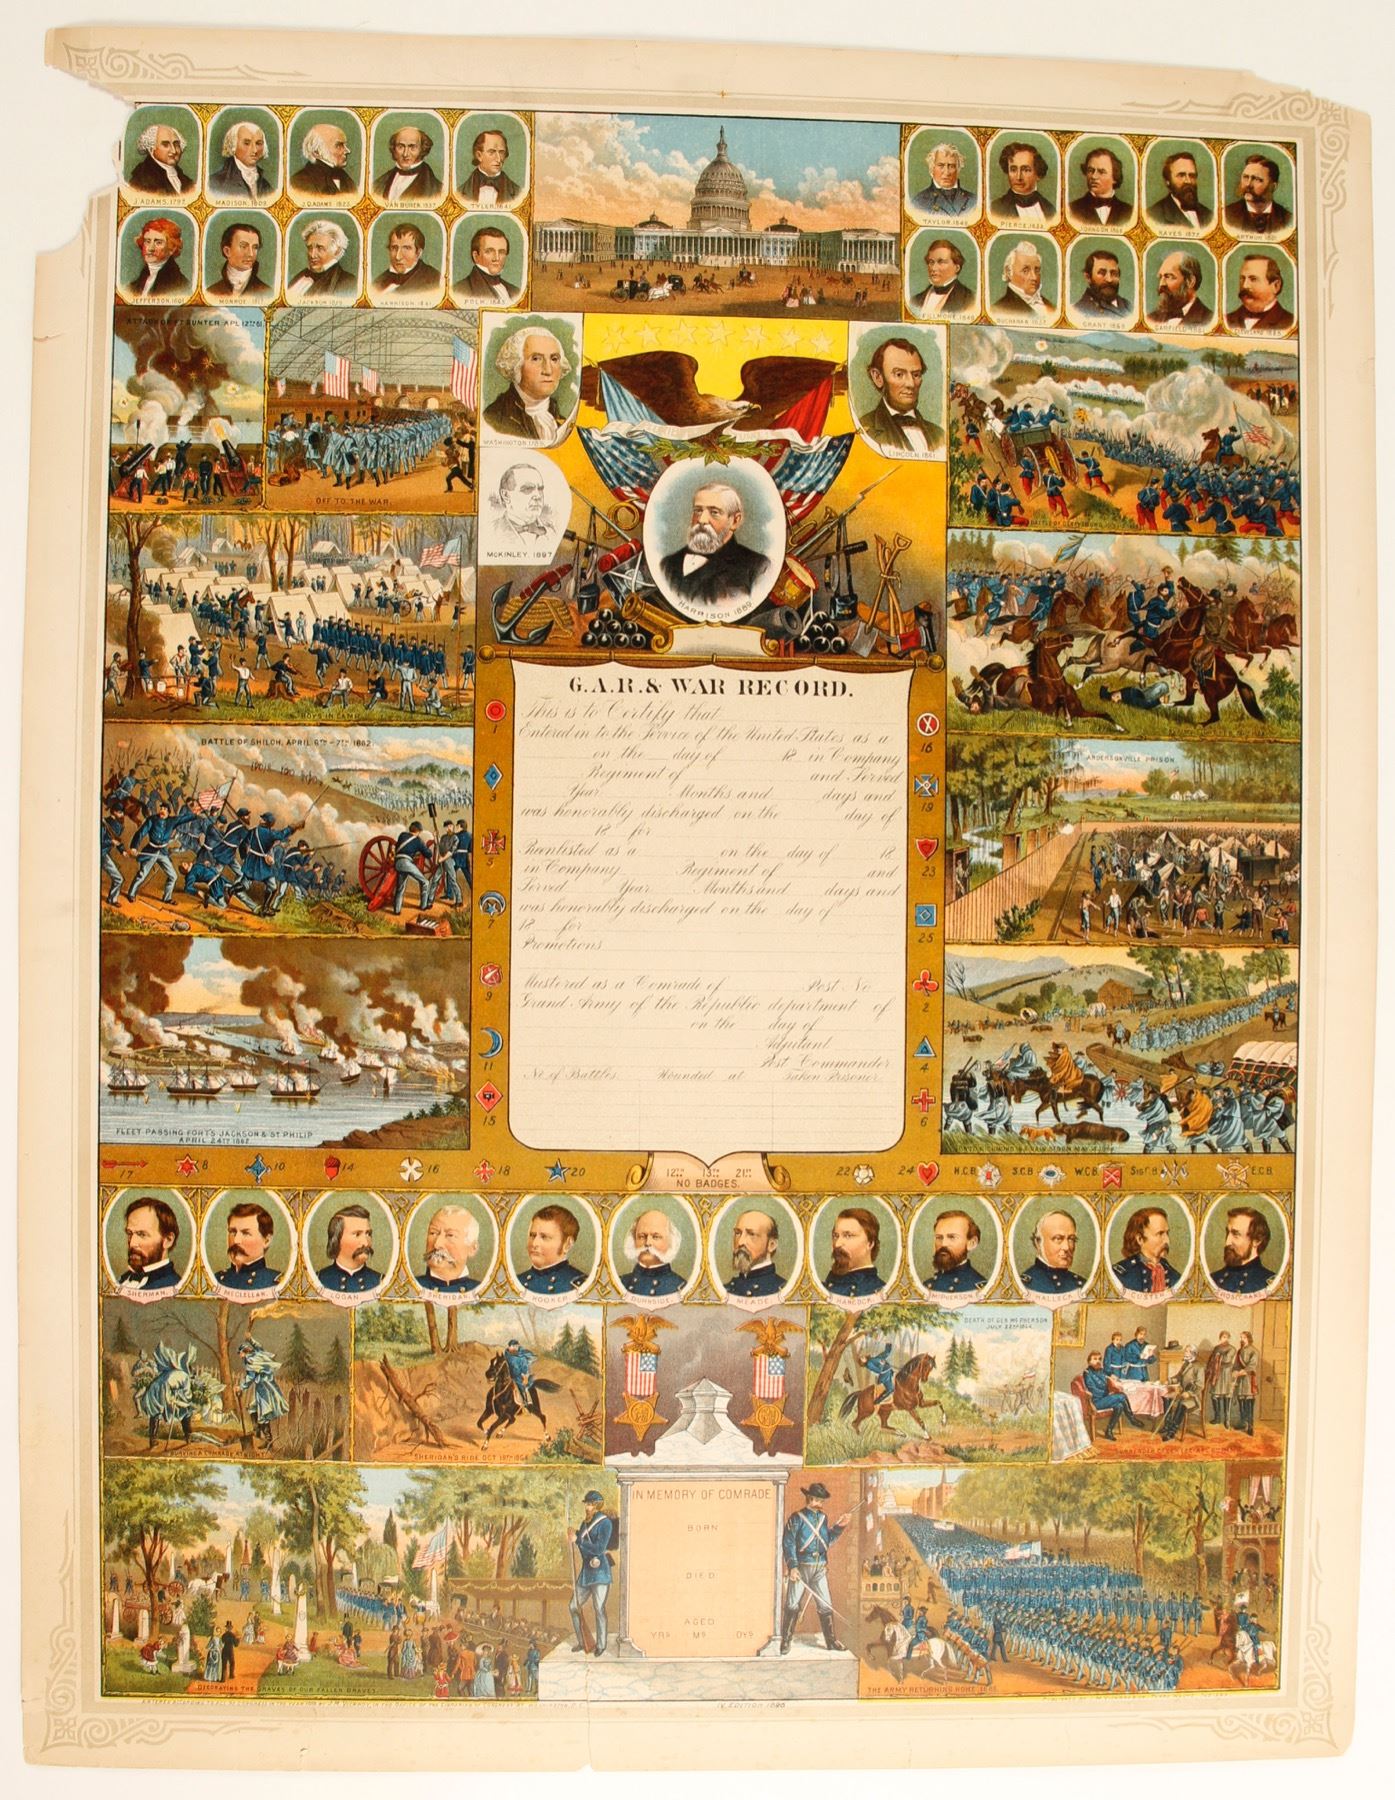 J. ADAMS, 1797.
MADISON, 1809.
J.Q. ADAMS 1825.
VAN BUREN 1837.
TYLER, 1841.
JEFFERSON, 1801.
MONROE, 1817.
JACKSON 1829.
HARRISON, 1841.
POLK, 1845.
TAYLOR, 1849.
PIERCE, 1853.
JOHNSON 1865.
HAYES 1877.
ARTHUR 1881.
FILLMORE 1850.
BUCHANAN 1857.
GRANT 1869.
GARFIELD 1881.
CLEVELAND 1885.
ATTACK ON FT SUMTER, APL 12TH 61
OFF TO THE WAR.
WASHINGTON 1789.
LINCOLN, 1861.
McKINLEY, 1897
HARRISON 1889.
BATTLE OF GETTYSBURG
BOYS IN CAMP
BATTLE OF SHILOH, APRIL 6TH - 7TH 1862
ANDERSONVILLE PRISON
FLEET PASSING FORTS JACKSON & ST PHILIP
APRIL 24TH 1862.
G.A.R. & WAR RECORD.
This is to Certify that
Entered in to the Service of the United States as a
on the day of 18 in Company
Regiment of and Served
Year Months and days and
was honorably discharged on the day of
18 for
Reenlisted as a on the day of 18
in Company Regiment of and
Served Year Months and days and
was honorably discharged on the day of
18 for
Promotions
Mustered as a Comrade of Post No
Grand Army of the Republic department of
on the day of
Adjutant
Post Commander
No of Battles Wounded at Taken Prisoner
1
3
5
7
9
11
15
16
19
23
25
2
4
6
17
8
10
14
16
18
20
12TH 13TH 21ST
NO BADGES.
22
24
H.C.B
S.C.B
W.C.B
SIG.C.B
E.C.B.
SHERMAN.
McCLELLAN.
LOGAN.
SHERIDAN.
HOOKER.
BURNSIDE.
MEADE.
HANCOCK.
McPHERSON.
HALLECK.
CUSTER.
ROSECRANS.
BURYING A COMRADE AT NIGHT
SHERIDAN'S RIDE OCT 19TH 1864
DEATH OF GEN. McPHERSON
JULY 22ND 1864.
SURRENDER OF GEN LEE
IN MEMORY OF COMRADE
BORN
DIED
AGED
YRS MS DYS
DECORATING THE GRAVES OF OUR FALLEN BRAVES.
THE ARMY RETURNING HOME 1865.
IV EDITION 1896